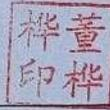 董桦
桦印